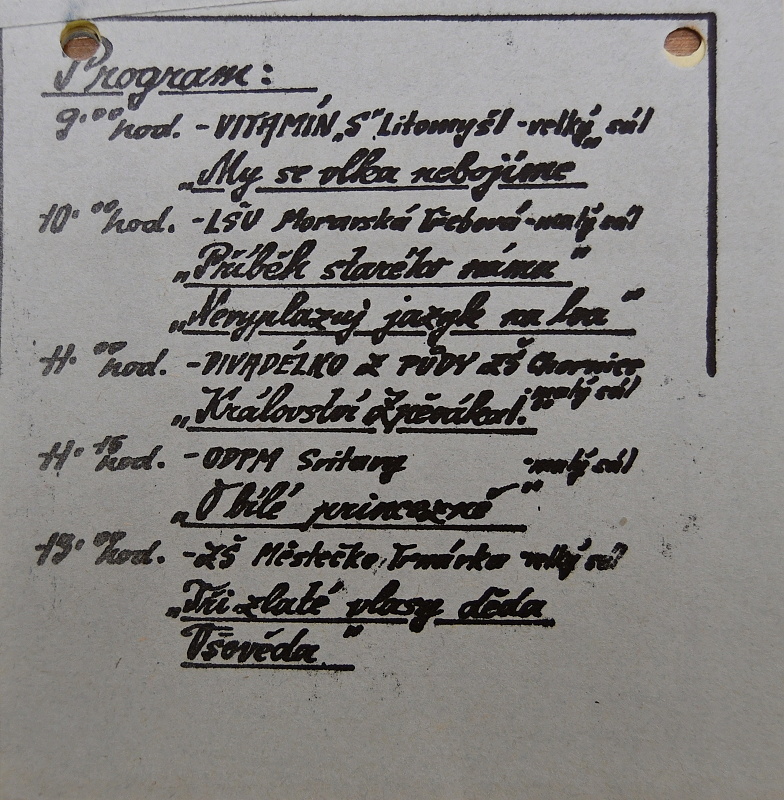 Program:
9.00 hod. - VITAMÍN „S“ Litomyšl - velký sál
„My se vlka nebojíme“
10.00 hod. - LŠU Moravská Třebová - malý sál
„Příběk starého mámu“
„Nevyplazuj jazyk na lva“
11.00 hod. - DIVADÉLKO Z PŮDY ZŠ Chornice
- malý sál
„Království Zpěvákal.“
11.15 hod. - ODPM Svitavy - malý sál
„O bílé princezně“
13.00 hod. - ZŠ Městečko Trnávka velký sál
„Tři zlaté vlasy děda
Vševěda“